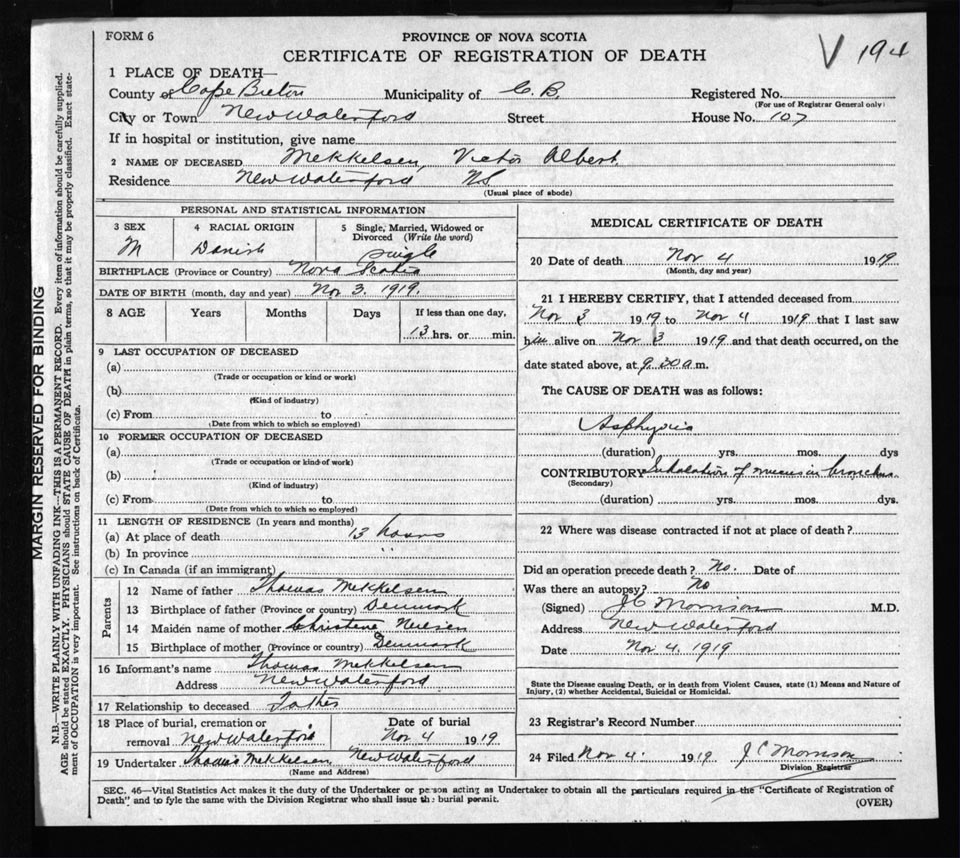 FORM 6
PROVINCE OF NOVA SCOTIA
CERTIFICATE OF REGISTRATION OF DEATH
V 194
1 PLACE OF DEATH—
County of Cape Breton Municipality of C. B. Registered No.
(For use of Registrar General only)
City or Town New Waterford Street House No. 107
If in hospital or institution, give name
2 NAME OF DECEASED Mekkelsen, Victor Albert
Residence New Waterford N.S.
(Usual place of abode)
PERSONAL AND STATISTICAL INFORMATION
3 SEX 4 RACIAL ORIGIN 5 Single, Married, Widowed or Divorced (Write the word)
M Danish single
BIRTHPLACE (Province or Country) Nova Scotia
DATE OF BIRTH (month, day and year) Nov 3. 1919.
8 AGE Years Months Days If less than one day,
13 hrs. or min.
9 LAST OCCUPATION OF DECEASED
(a)
(Trade or occupation or kind or work)
(b)
(Kind of industry)
(c) From to
(Date from which to which so employed)
10 FORMER OCCUPATION OF DECEASED
(a)
(Trade or occupation or kind of work)
(b)
(Kind of industry)
(c) From to
(Date from which to which so employed)
11 LENGTH OF RESIDENCE (In years and months)
(a) At place of death 13 hours
(b) In province "
(c) In Canada (if an immigrant)
Parents
12 Name of father Thomas Mekkelsen
13 Birthplace of father (Province or country) Denmark
14 Maiden name of mother Christene Neilsen
15 Birthplace of mother (Province or country) Denmark
16 Informant's name Thomas Mekkelsen
Address New Waterford
17 Relationship to deceased Father
18 Place of burial, cremation or Date of burial
removal New Waterford Nov 4 1919
19 Undertaker Thomas Mekkelsen New Waterford
(Name and Address)
MEDICAL CERTIFICATE OF DEATH
20 Date of death Nov 4 1919
(Month, day and year)
21 I HEREBY CERTIFY, that I attended deceased from
Nov 3 1919 to Nov 4 1919 that I last saw
him alive on Nov 3 1919 and that death occurred, on the
date stated above, at 9.30 a m.
The CAUSE OF DEATH was as follows:
Asphyxia
(duration) yrs. mos. dys
CONTRIBUTORY Inhalation of mucus in bronchus
(Secondary)
(duration) yrs. mos. dys.
22 Where was disease contracted if not at place of death?
Did an operation precede death? No. Date of
Was there an autopsy? No
(Signed) J C Morrison M.D.
Address New Waterford
Date Nov 4. 1919
State the Disease causing Death, or in death from Violent Causes, state (1) Means and Nature of
Injury, (2) whether Accidental, Suicidal or Homicidal.
23 Registrar's Record Number
24 Filed Nov 4 1919 J C Morrison
Division Registrar
SEC. 46—Vital Statistics Act makes it the duty of the Undertaker or person acting as Undertaker to obtain all the particulars required in the "Certificate of Registration of
Death" and to fyle the same with the Division Registrar who shall issue the burial permit.
(OVER)
MARGIN RESERVED FOR BINDING
N.B.—WRITE PLAINLY WITH UNFADING INK—THIS IS A PERMANENT RECORD. Every item of information should be carefully supplied.
AGE should be stated EXACTLY. PHYSICIANS should STATE CAUSE OF DEATH in plain terms, so that it may be properly classified. Exact state-
ment of OCCUPATION is very important. See instructions on back of Certificate.